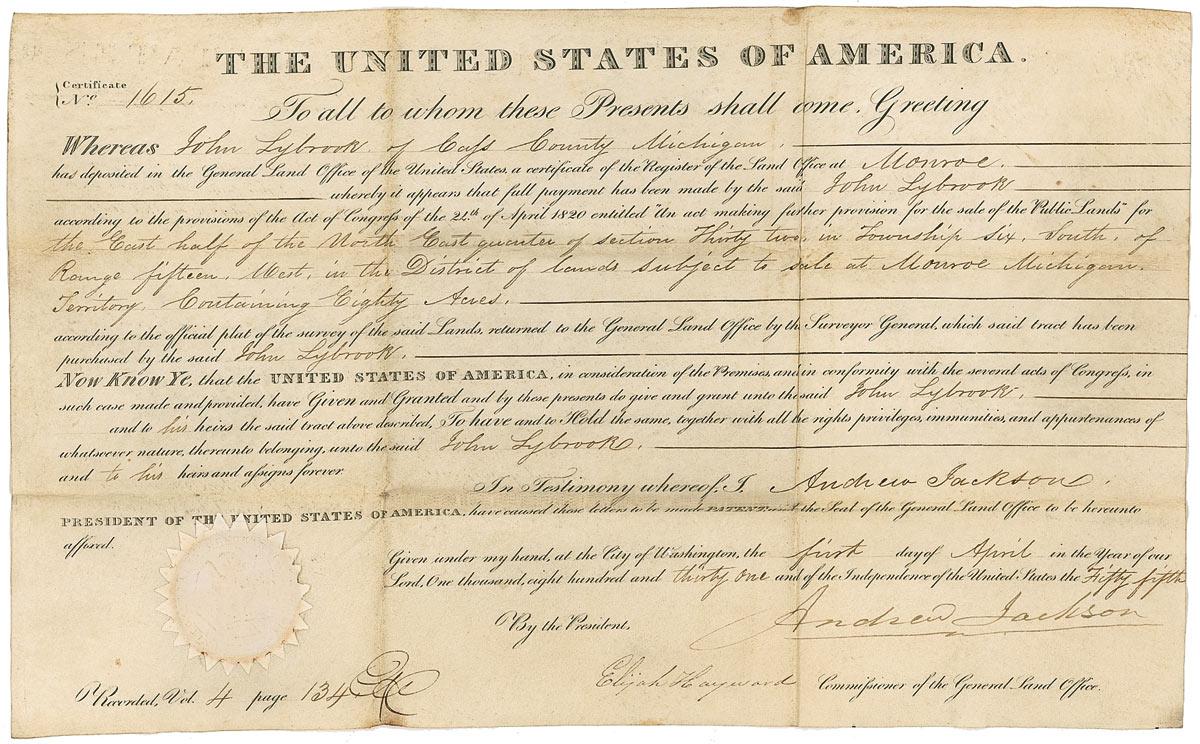 THE UNITED STATES OF AMERICA.
Certificate
No. 1615.
To all to whom these Presents shall come, Greeting
Whereas John Lybrook, of Cass County Michigan.
has deposited in the General Land Office of the United States, a certificate of the Register of the Land Office at Monroe.
whereby it appears that full payment has been made by the said John Lybrook
according to the provisions of the Act of Congress of the 24th of April 1820 entitled "An act making further provision for the sale of the Public Lands" for
the East half of the North East quarter of section Thirty two, in Township six, South, of
Range fifteen, West, in the District of lands subject to sale at Monroe Michigan.
Territory, Containing Eighty Acres.
according to the official plat of the survey of the said Lands, returned to the General Land Office by the Surveyor General, which said tract has been
purchased by the said John Lybrook.
Now Know Ye, that the UNITED STATES OF AMERICA, in consideration of the Premises, and in conformity with the several acts of Congress, in
such case made and provided, have Given and Granted and by these presents do give and grant unto the said John Lybrook,
and to his heirs the said tract above described, To have and to Hold the same, together with all the rights privileges, immunities, and appurtenances of
whatsoever, nature, thereunto belonging, unto the said John Lybrook,
and to his heirs and assigns forever.
In Testimony whereof, I, Andrew Jackson,
PRESIDENT OF THE UNITED STATES OF AMERICA, have caused these letters to be made PATENT and the Seal of the General Land Office to be hereunto
affixed.
Given under my hand, at the City of Washington, the first day of April in the Year of our
Lord, One thousand, eight hundred and thirty one and of the Independence of the United States the Fifty fifth
Andrew Jackson
By the President,
Elijah Hayward Commissioner of the General Land Office.
Recorded, Vol. 4 page 134